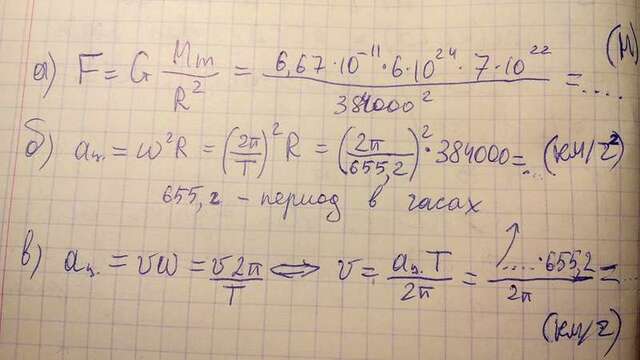 а) F = G Mm/R² = 6,67·10⁻¹¹·6·10²⁴·7·10²²/384000² = .... (Н)
б) aц. = ω²R = (2π/T)² R = (2π/655,2)²·384000 = ... (км/ч²)
655,2 - период в часах
в) aц. = vω = v2π/T ⟺ v = aц.T/2π = ....·655,2/2π = ...
(км/ч)